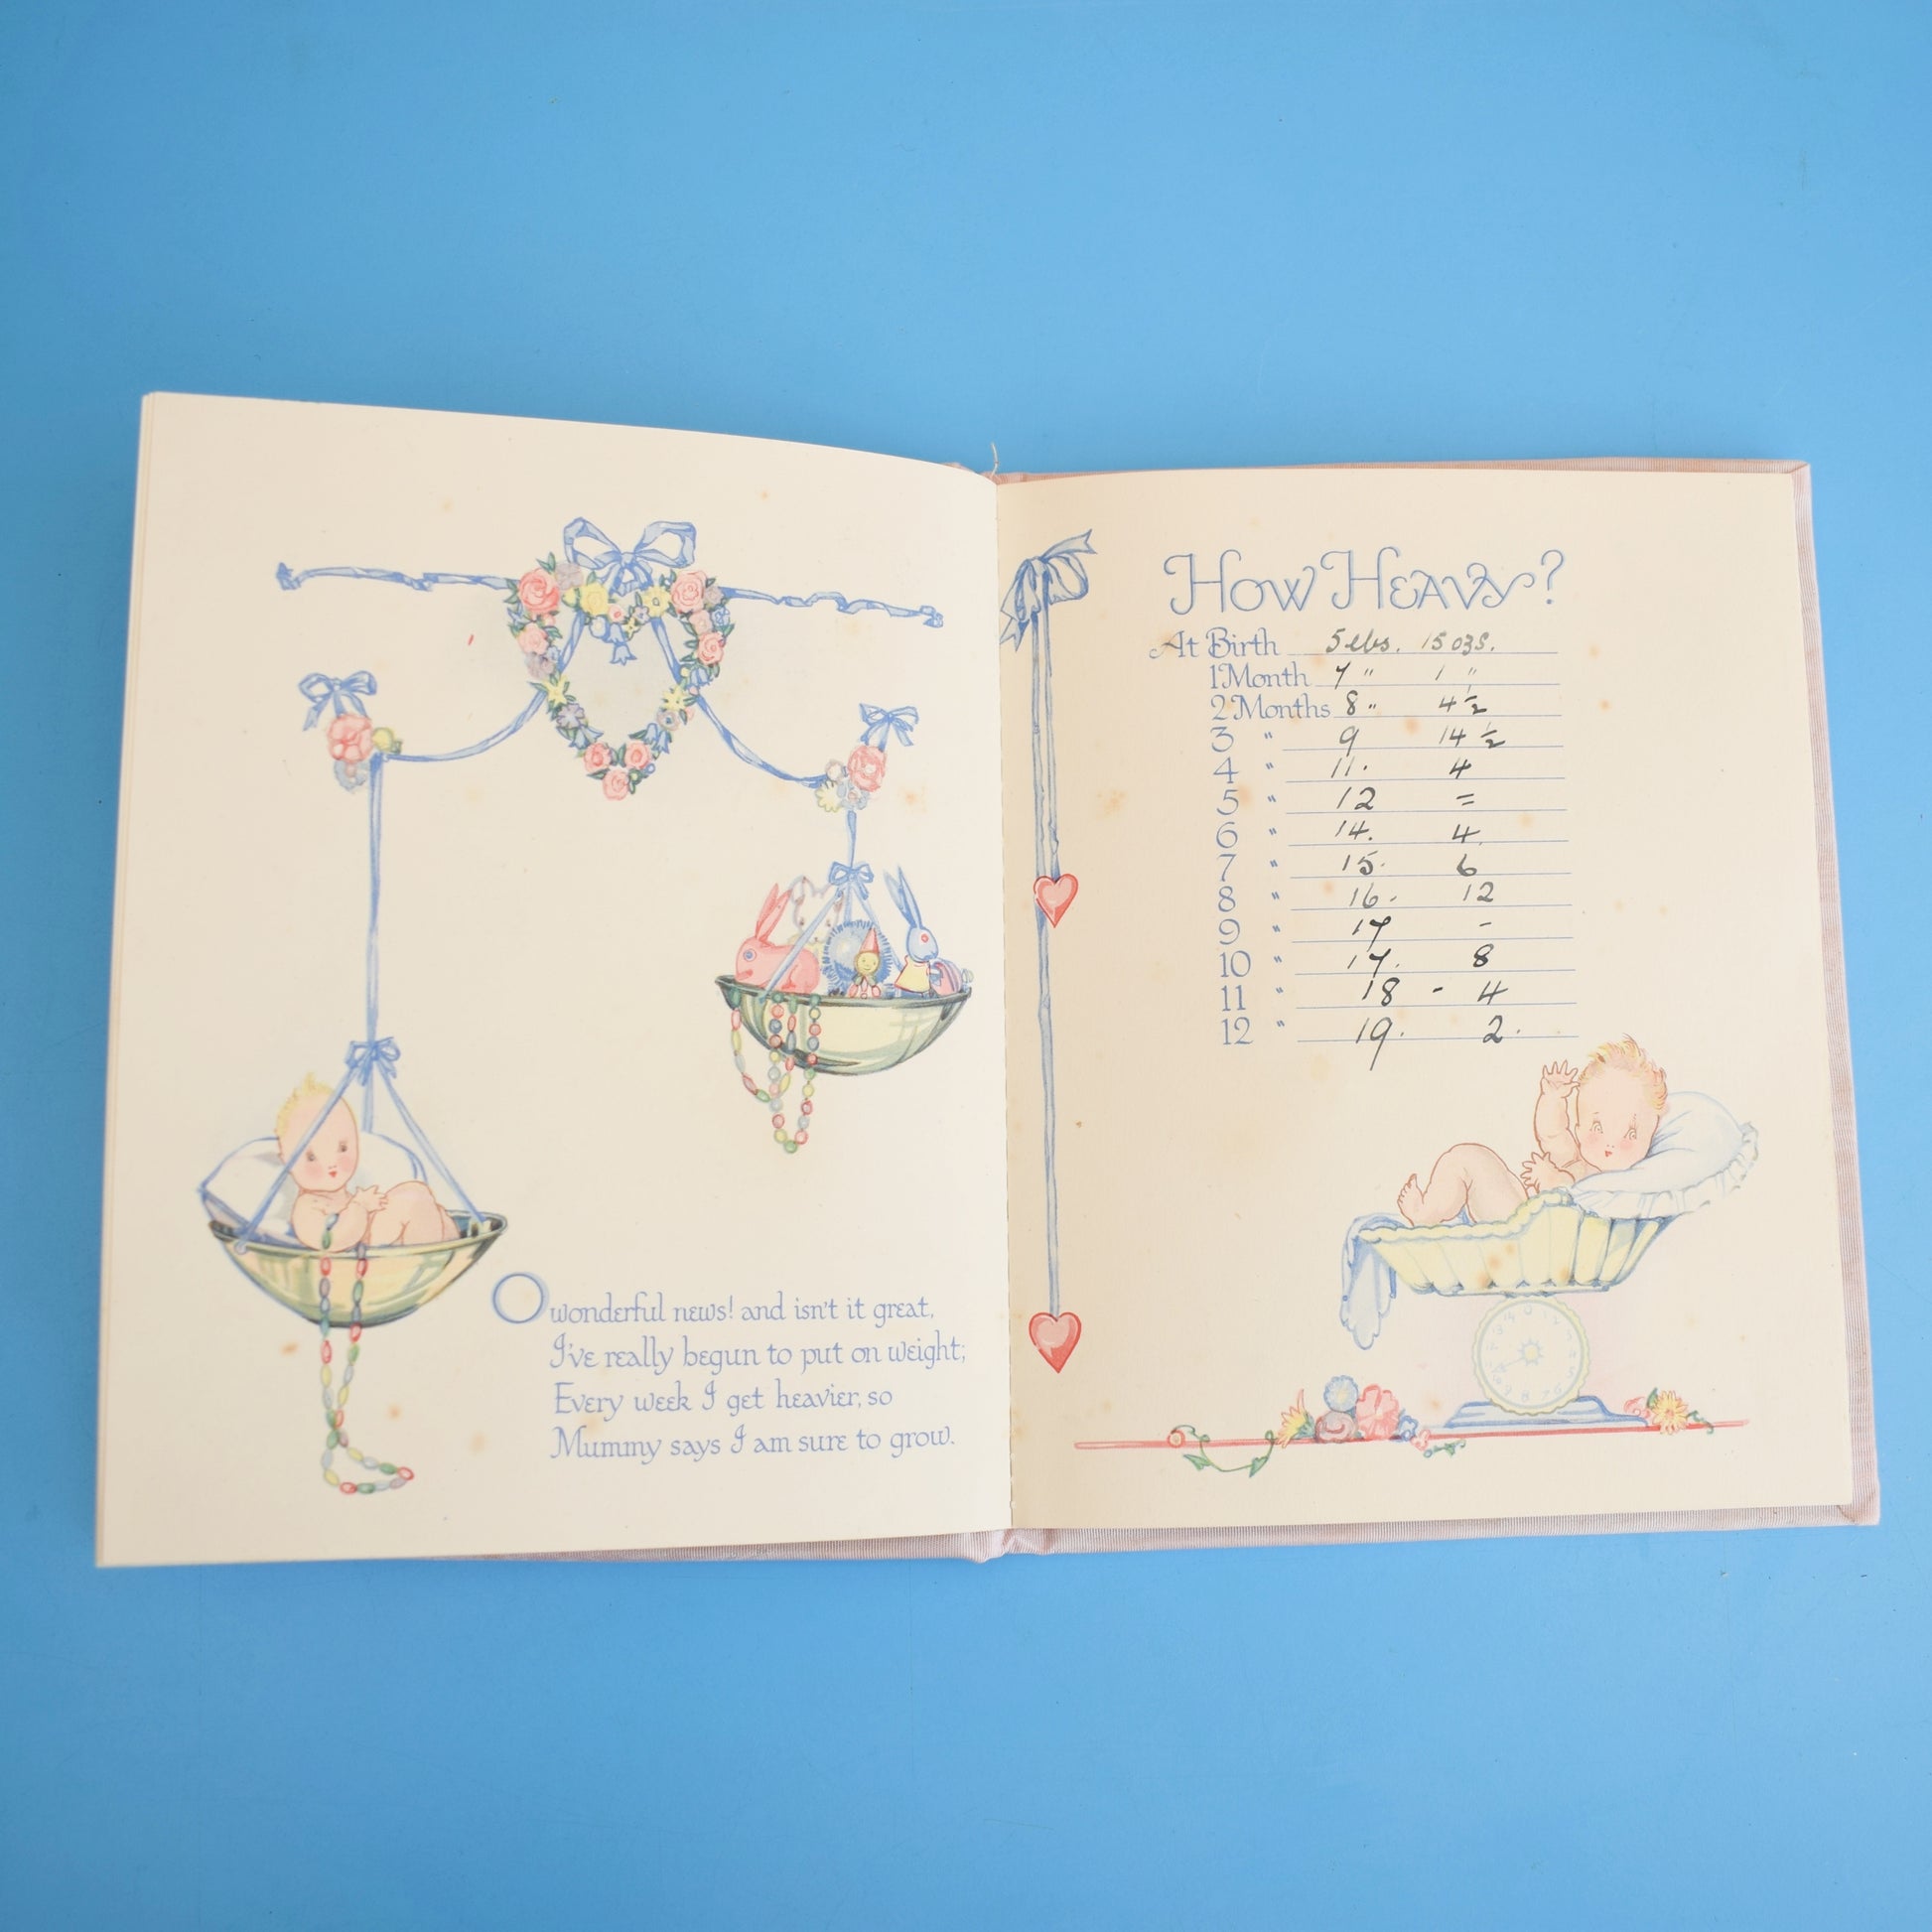 O wonderful news! and isn't it great,
I've really begun to put on weight;
Every week I get heavier, so
Mummy says I am sure to grow.
How Heavy?
At Birth 5 lbs. 15 ozs.
1 Month 7 " 1 "
2 Months 8 " 4 ½
3 " 9 14 ½
4 " 11. 4
5 " 12 =
6 " 14. 4.
7 " 15. 6
8 " 16. 12
9 " 17 -
10 " 17. 8
11 " 18 - 4
12 " 19. 2.